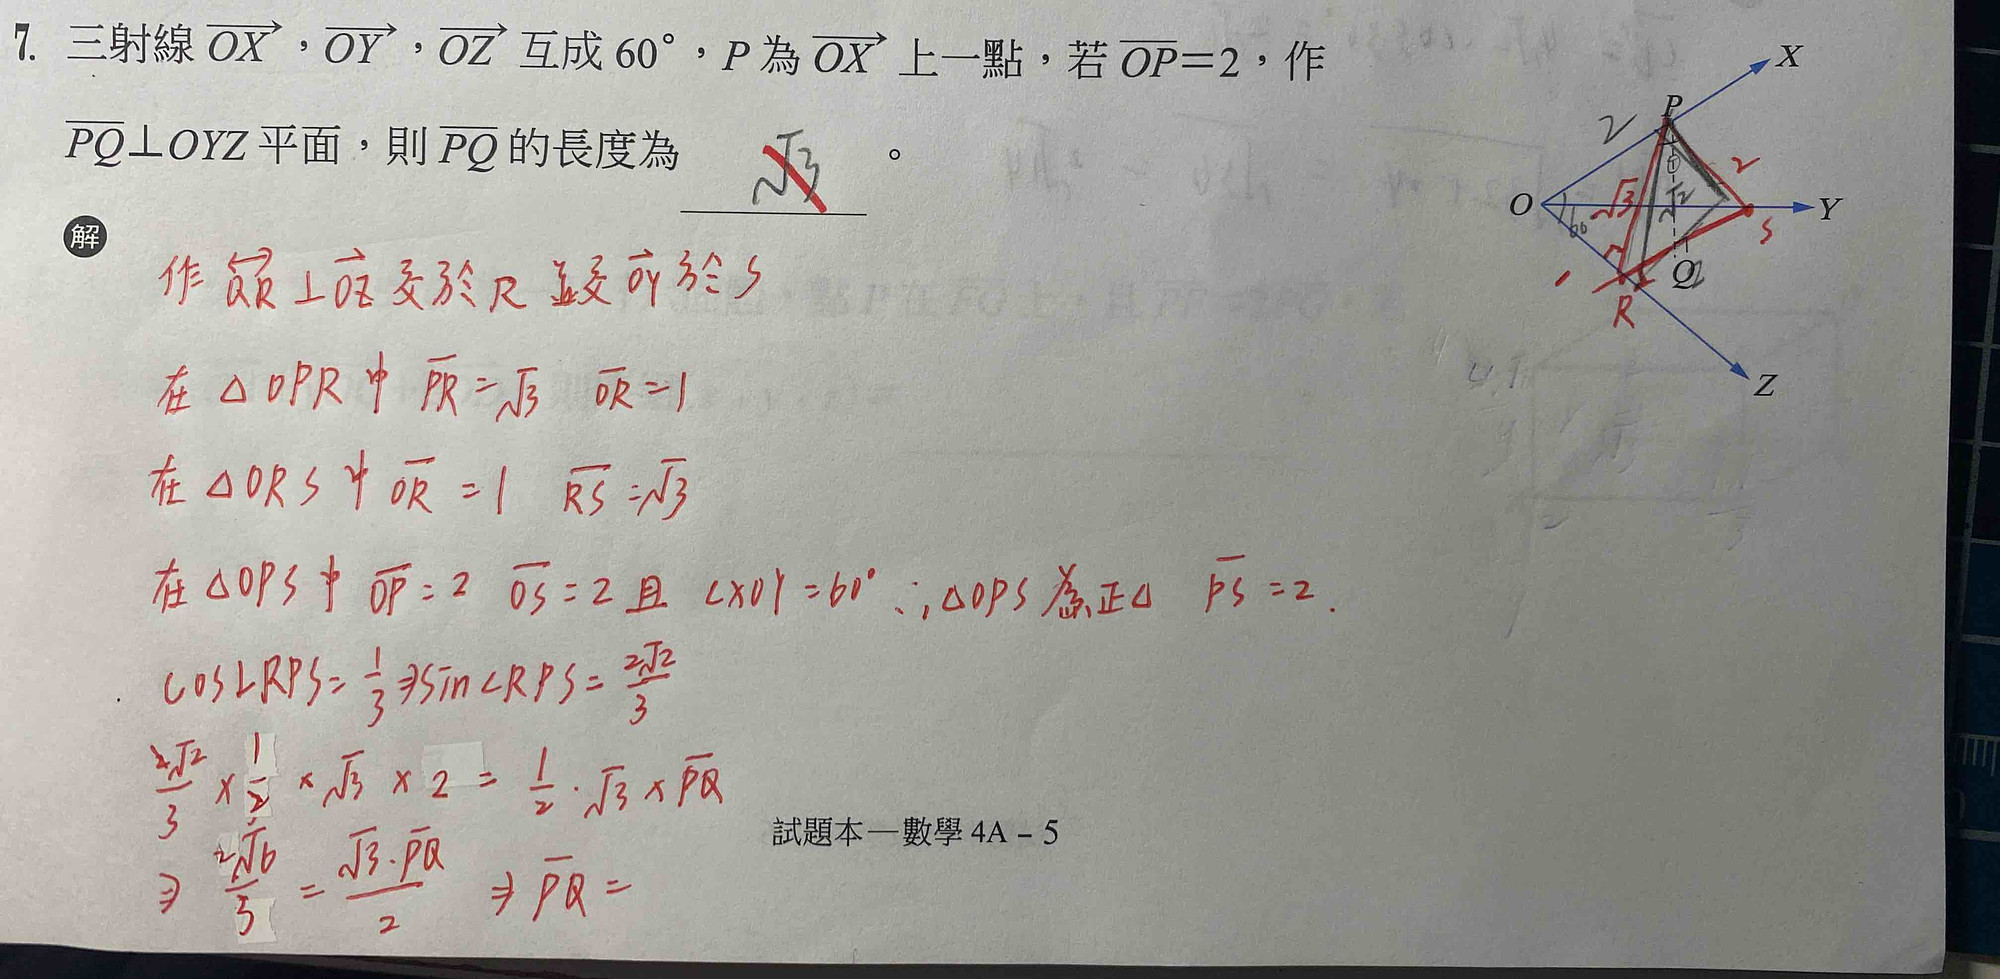 7. 三射線 OX，OY，OZ 互成 60°，P 為 OX 上一點，若 OP=2，作
PQ⊥OYZ 平面，則 PQ 的長度為 √3 。
解
作 QR ⊥ OZ 交於 R 並交 OY 於 S
在 △OPR 中 PR = √3 OR = 1
在 △ORS 中 OR = 1 RS = √3
在 △OPS 中 OP = 2 OS = 2 且 ∠XOY = 60° ∴ △OPS 為正△ PS = 2.
cos∠RPS = 1/3 ⇒ sin∠RPS = 2√2/3
2√2/3 × 1/2 × √3 × 2 = 1/2 · √3 × PQ
⇒ 2√6/3 = √3·PQ/2 ⇒ PQ =
試題本—數學 4A – 5
X
P
2
2
O
60°
√3
√2
Y
S
Q
1
R
Z